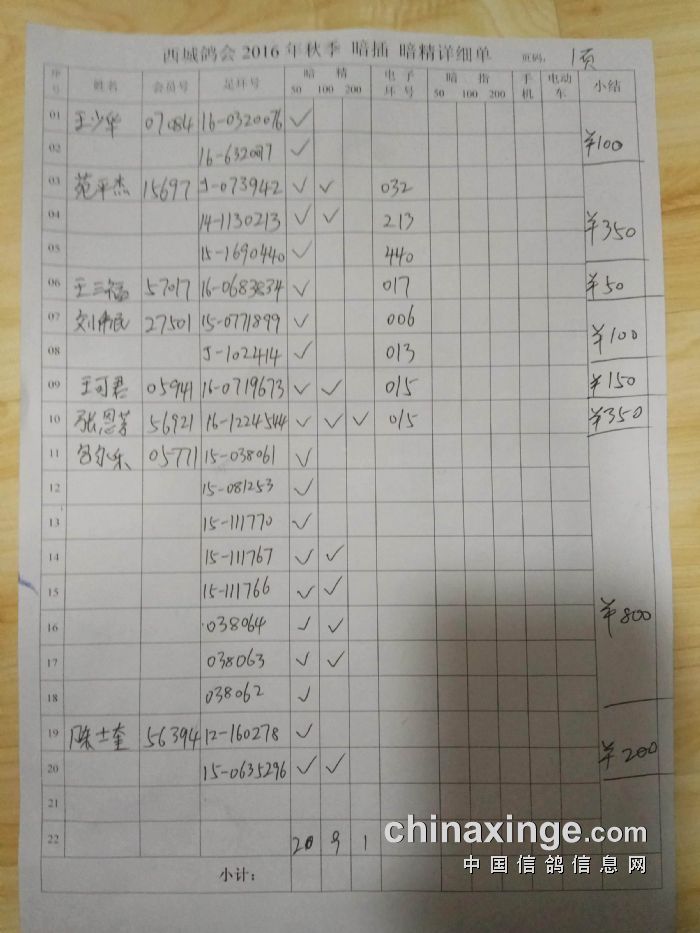 西城鸽会2016年秋季 暗插 暗精详细单 页码: 1页
序号 姓名 会员号 足环号 暗 精 50 100 200 电子环号 暗 指 50 100 200 手机 电动车 小结
01 王少华 07084 16-0320076 ✓
02 16-632097 ✓ ¥100
03 苑平杰 15697 J-073942 ✓ ✓ 032
04 14-1130213 ✓ ✓ 213 ¥350
05 15-1690440 ✓ 440
06 王三福 57017 16-0683834 ✓ 017 ¥50
07 刘伟民 27501 15-0771899 ✓ 006
08 J-102414 ✓ 013 ¥100
09 王可君 05941 16-0719673 ✓ ✓ 015 ¥150
10 张恩芳 56921 16-1224544 ✓ ✓ ✓ 015 ¥350
11 05771 15-038061 ✓
12 15-081253 ✓
13 15-111770 ✓
14 15-111767 ✓ ✓
15 15-111766 ✓ ✓
16 038064 ✓ ✓ ¥800
17 038063 ✓ ✓
18 038062 ✓
19 陈士奎 56394 12-160278 ✓
20 15-0635296 ✓ ✓ ¥200
21
22 20 9 1
小计:
chinaxinge.com
中国信鸽信息网